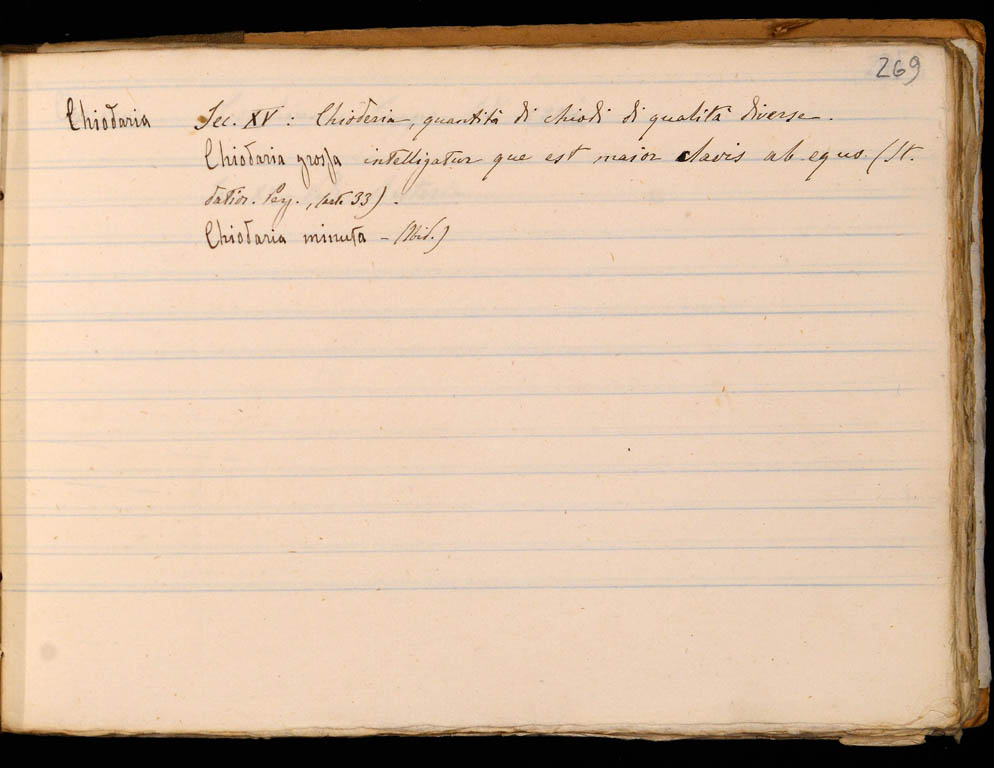 269
Chiodaria Sec. XV : Chioderia, quantità di chiodi di qualità diverse.
Chiodaria grossa intelligatur que est maior clavis ab equo (St.
datior. Pey., carte 33).
Chiodaria minuta - (Ibid.)